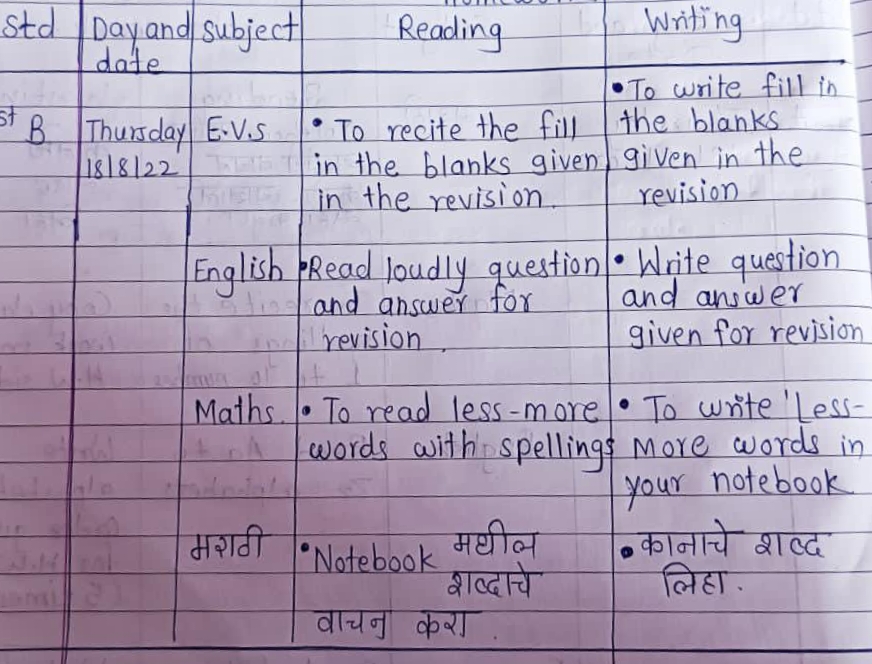 Std Day and subject Reading Writing
date
st B Thursday E.V.S • To recite the fill • To write fill in
18/8/22 in the blanks given the blanks
in the revision. given in the
revision
English • Read loudly question • Write question
and answer for and answer
revision. given for revision
Maths. • To read less-more • To write 'Less-
words with spellings More words in
your notebook
मराठी • Notebook मधील • कानाचे शब्द
शब्दाचे लिहा.
वाचन करा.